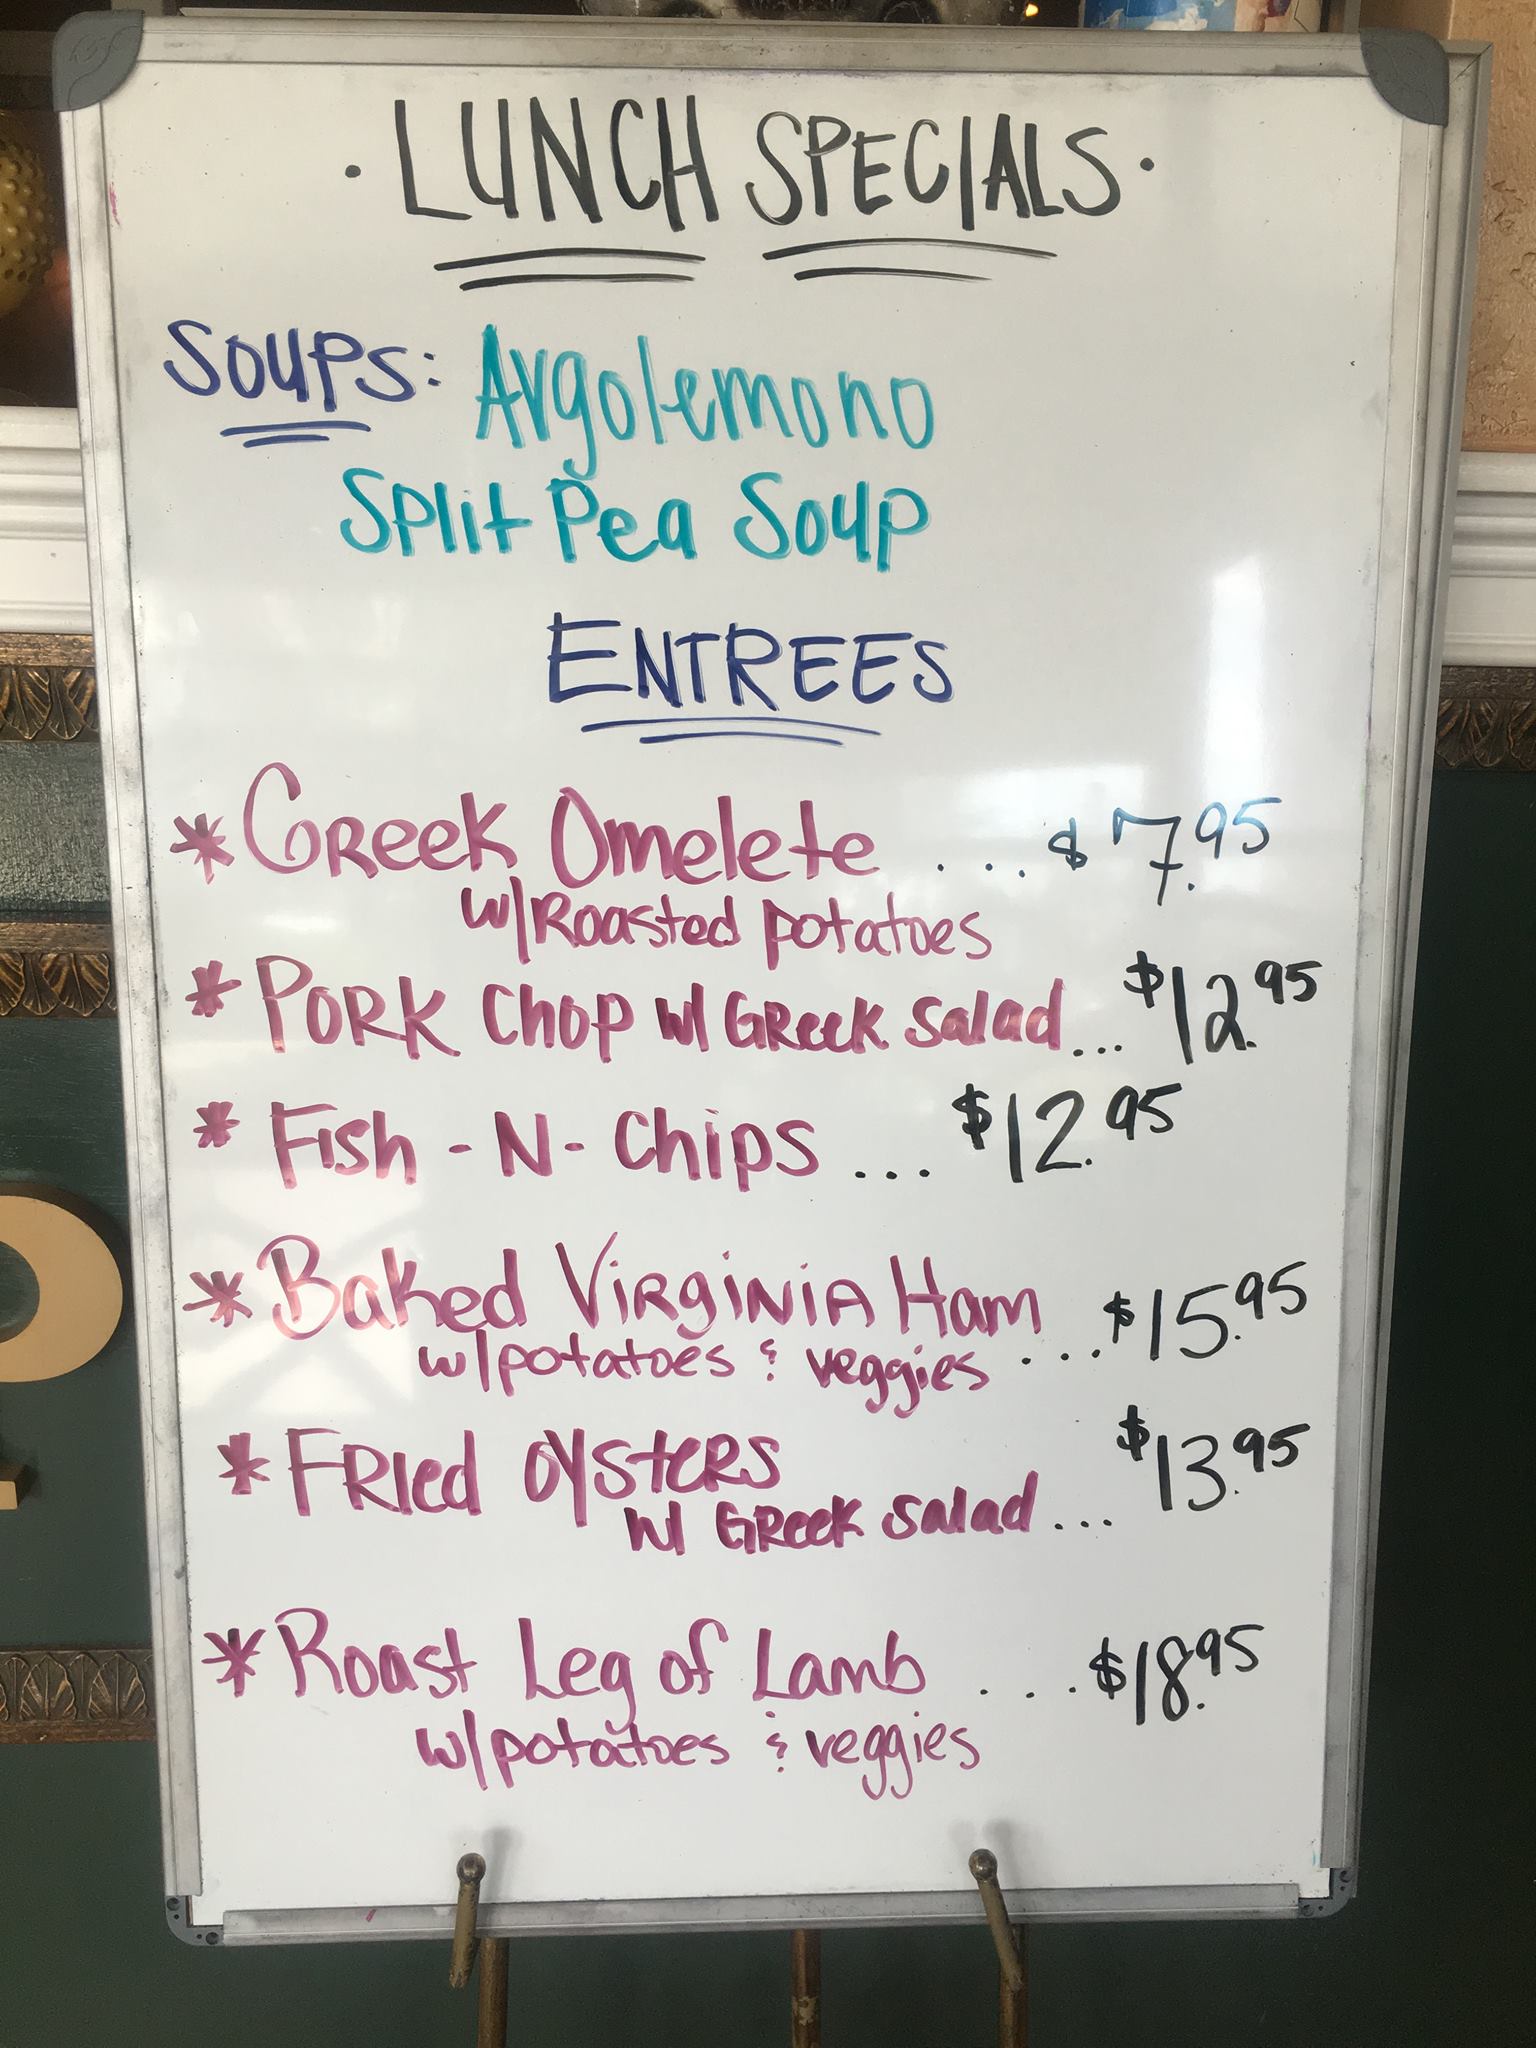 · LUNCH SPECIALS ·
SOUPS: Avgolemono
Split Pea Soup
ENTREES
* Greek Omelete ... $7.95
w/Roasted potatoes
* Pork Chop w/ Greek Salad ... $12.95
* Fish - N - Chips ... $12.95
* Baked Virginia Ham
w/potatoes & veggies ... $15.95
* Fried Oysters
w/ Greek Salad ... $13.95
* Roast Leg of Lamb .... $18.95
w/potatoes & veggies